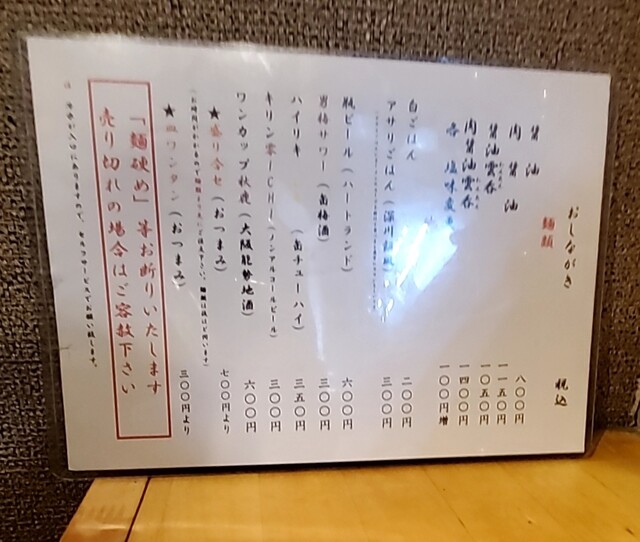 おしながき
税込
麺類
醤油 八〇〇円
肉醤油 一一五〇円
醤油雲呑 一〇五〇円
肉醤油雲呑 一四〇〇円
各 塩味変 一〇〇円増
白ごはん 二〇〇円
アサリごはん(深川 三〇〇円
瓶ビール(ハートランド) 六〇〇円
男梅サワー(缶梅酒) 三〇〇円
ハイリキ (缶チューハイ) 三五〇円
キリン零ICHI(ノンアルコールビール) 三〇〇円
ワンカップ秋鹿(大阪能勢地酒) 六〇〇円
★盛り合せ(おつまみ) 七〇〇円より
★皿ワンタン(おつまみ) 三〇〇円より
「麺硬め」等お断りいたします
売り切れの場合はご容赦下さい
セルフサービスでお願い致します。